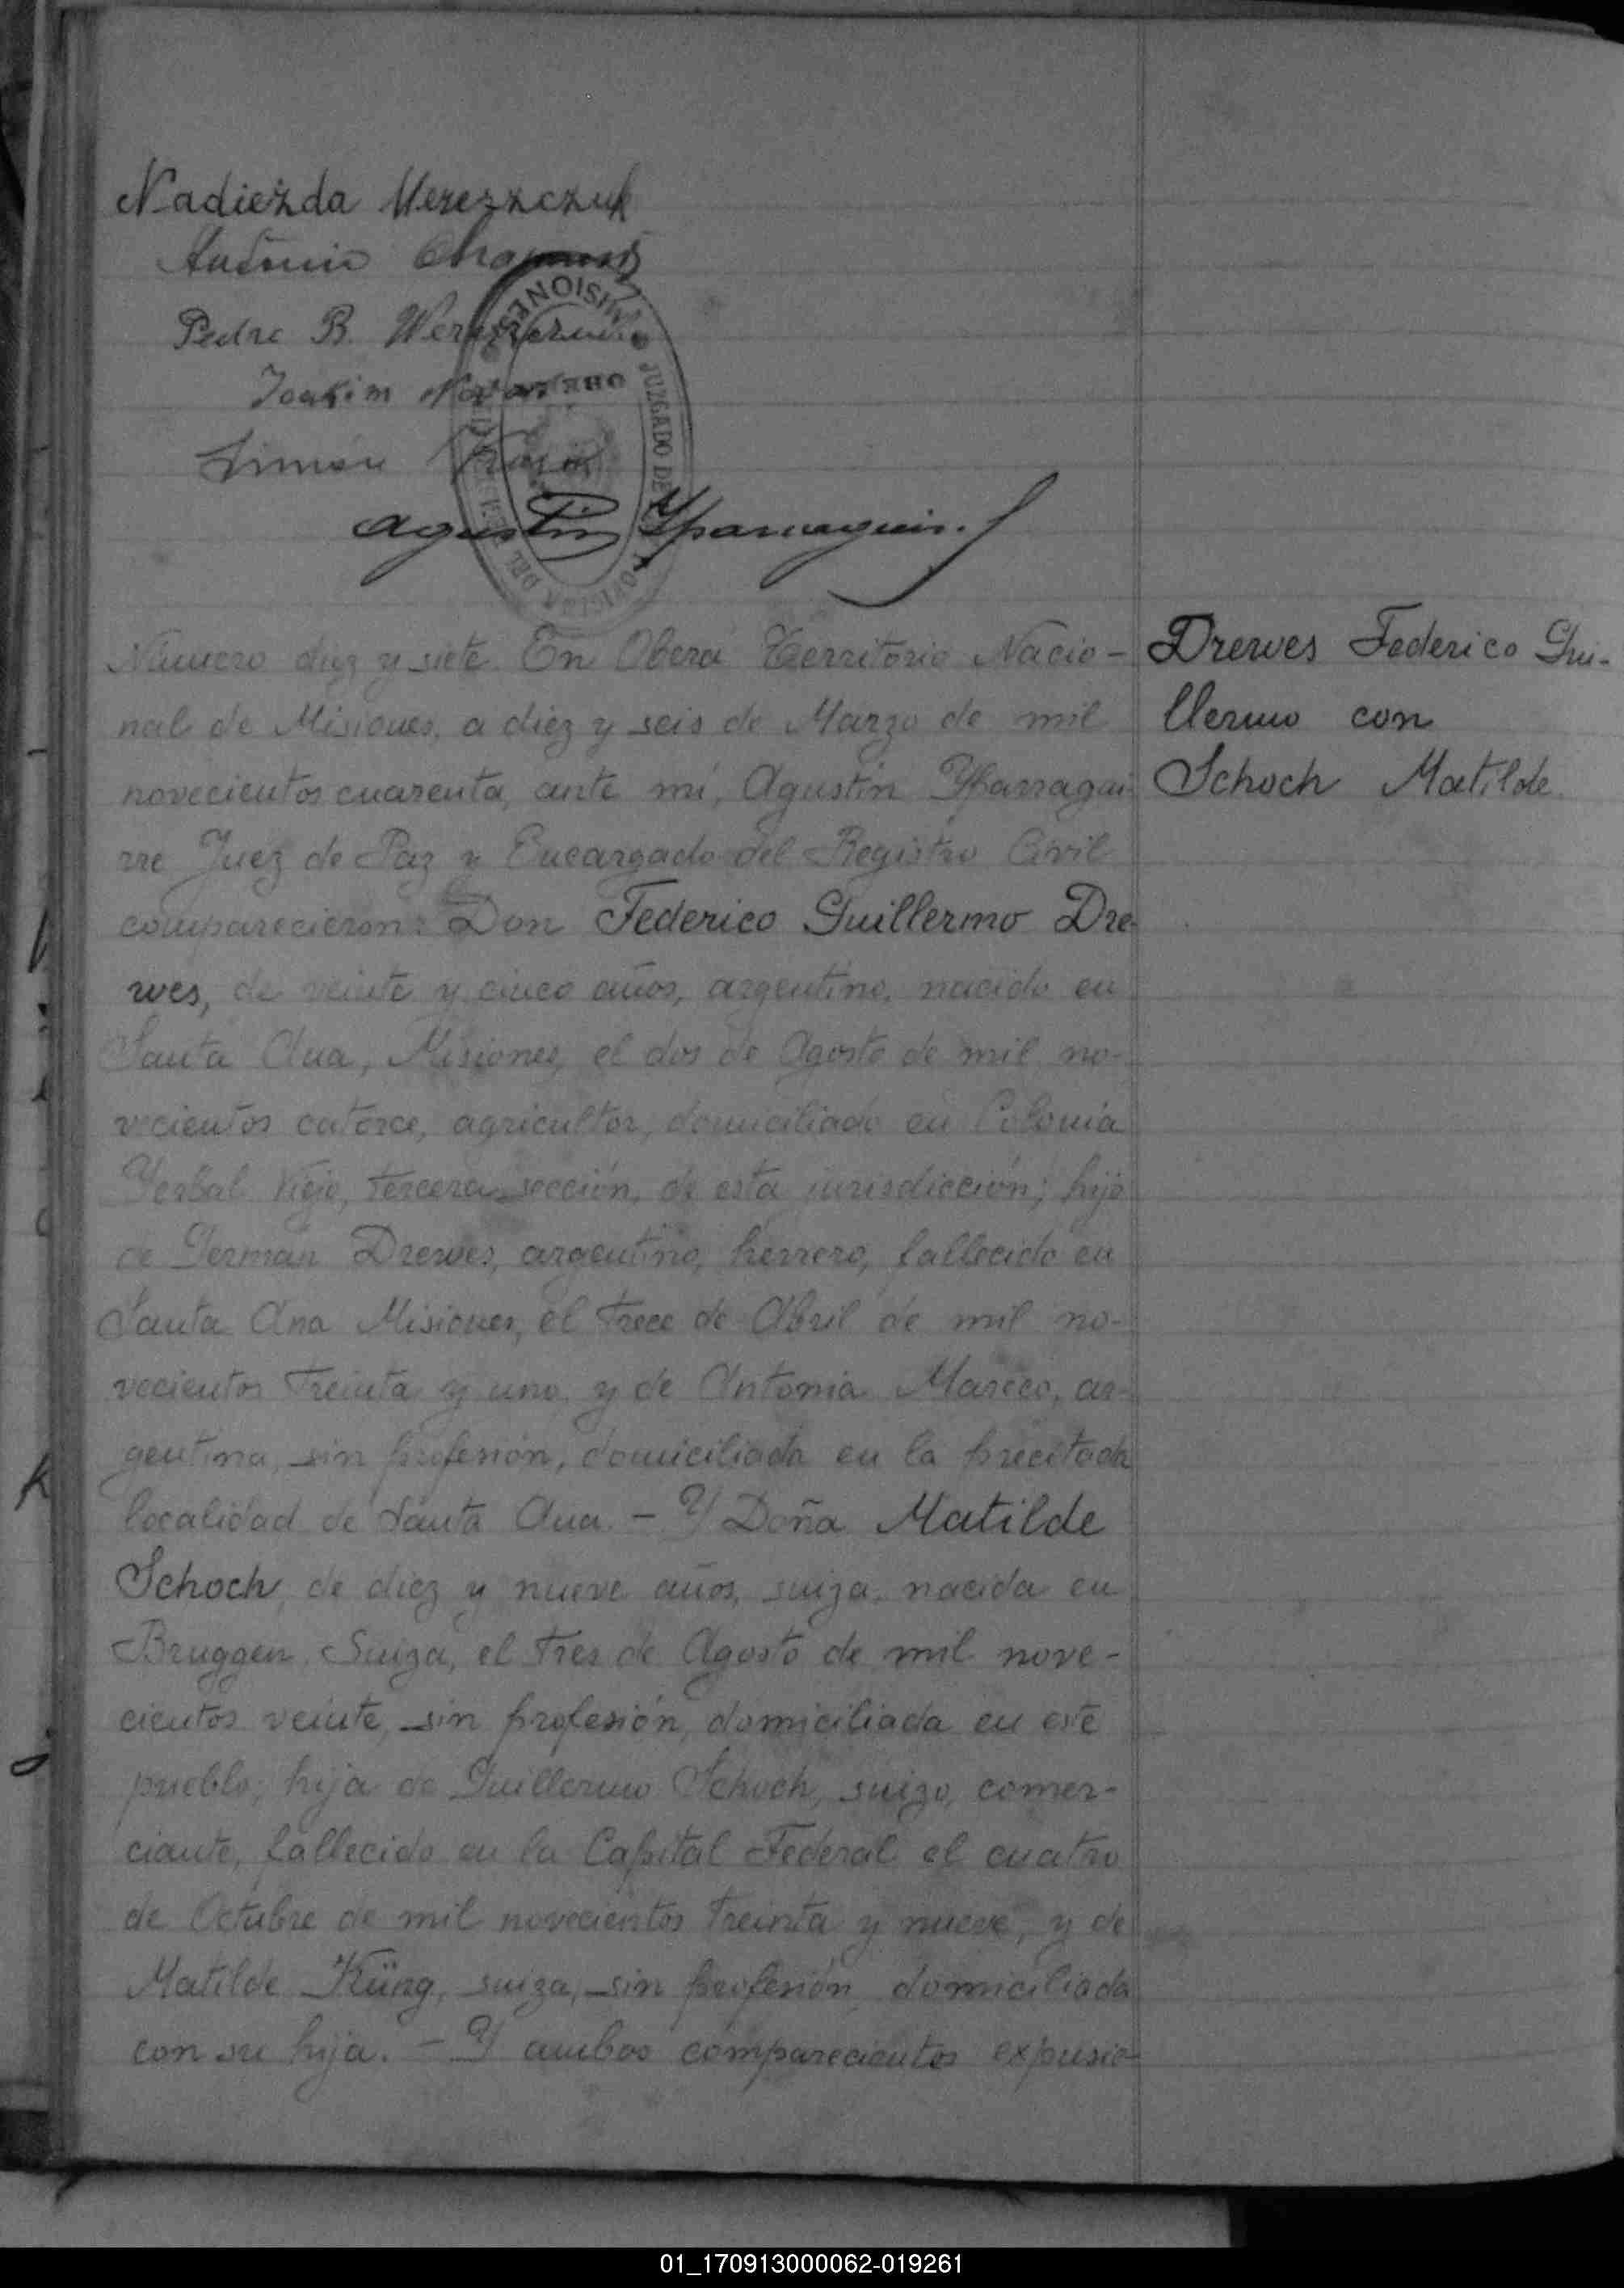 Nadieżda Wereszczuk
Antonio
Pedro B. Wereszczuk
Joakim
Simón
MISIONES
OBERA
JUZGADO DE
DEL
Agustín Yparraguirre
Número diez y siete. En Oberá Territorio Nacio-
nal de Misiones, a diez y seis de Marzo de mil
novecientos cuarenta, ante mí, Agustín Yparragui
rre Juez de Paz y Encargado del Registro Civil
comparecieron: Don Federico Guillermo Dre-
wes, de veinte y cinco años, argentino, nacido en
Santa Ana, Misiones, el dos de Agosto de mil no-
vecientos catorce, agricultor, domiciliado en Colonia
Yerbal Viejo, tercera sección, de esta jurisdicción; hijo
de Germán Drewes, argentino, herrero, fallecido en
Santa Ana Misiones, el trece de Abril de mil no-
vecientos treinta y uno, y de Antonia Mareco, ar-
gentina, sin profesión, domiciliada en la precitada
localidad de Santa Ana. - Y Doña Matilde
Schoch, de diez y nueve años, suiza, nacida en
Bruggen, Suiza, el tres de Agosto de mil nove-
cientos veinte, sin profesión, domiciliada en este
pueblo; hija de Guillermo Schoch, suizo, comer-
ciante, fallecido en la Capital Federal el cuatro
de Octubre de mil novecientos treinta y nueve, y de
Matilde Küng, suiza, sin profesión, domiciliada
con su hija. - Y ambos comparecientes expusie-
Drewes Federico Gui-
llermo con
Schoch Matilde
01_170913000062-019261